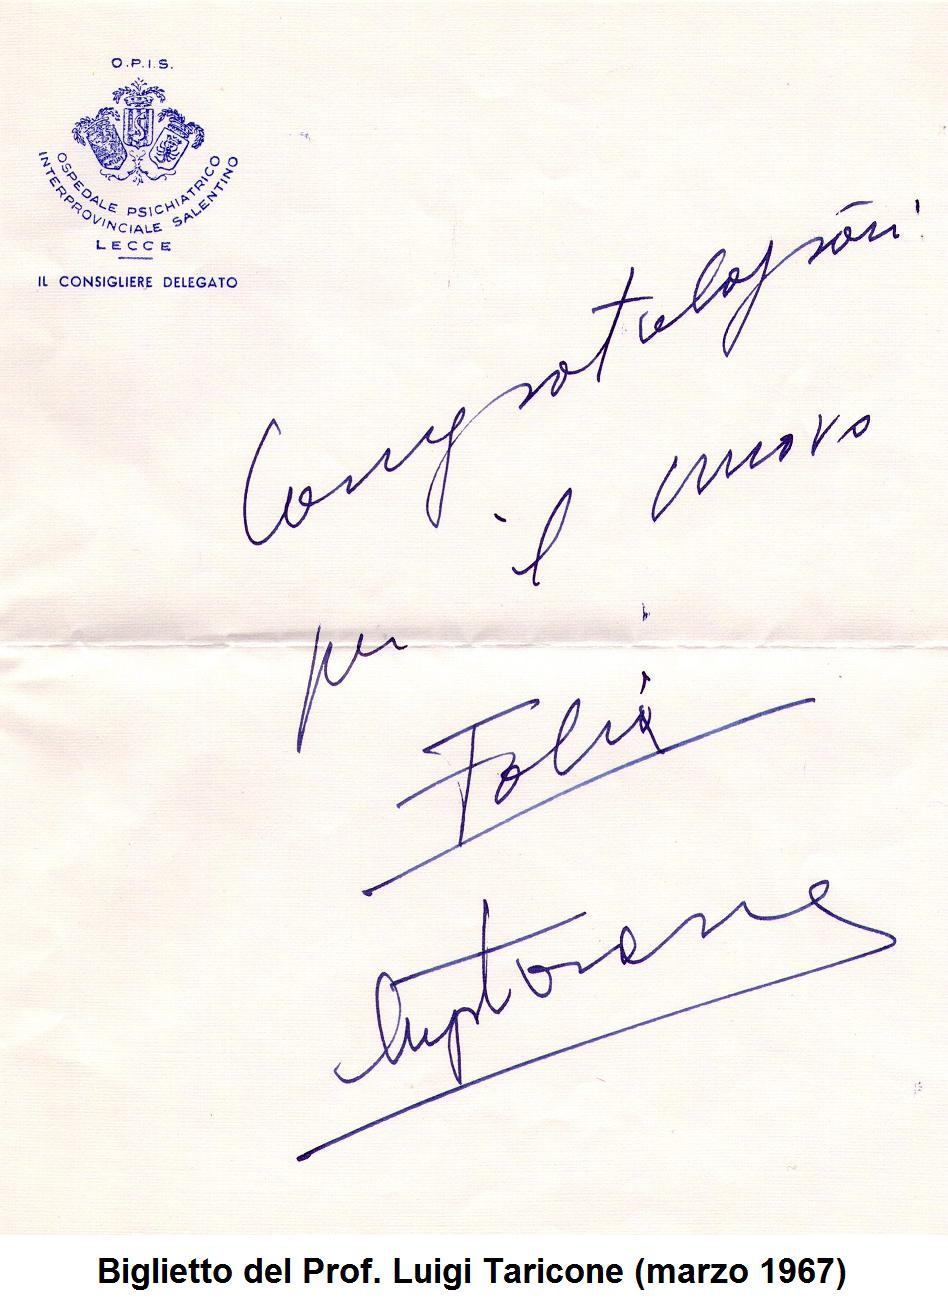 O.P.I.S.
OSPEDALE PSICHIATRICO
INTERPROVINCIALE SALENTINO
LECCE
IL CONSIGLIERE DELEGATO
Congratulazioni
per il nuovo
Luigi Taricone
Biglietto del Prof. Luigi Taricone (marzo 1967)